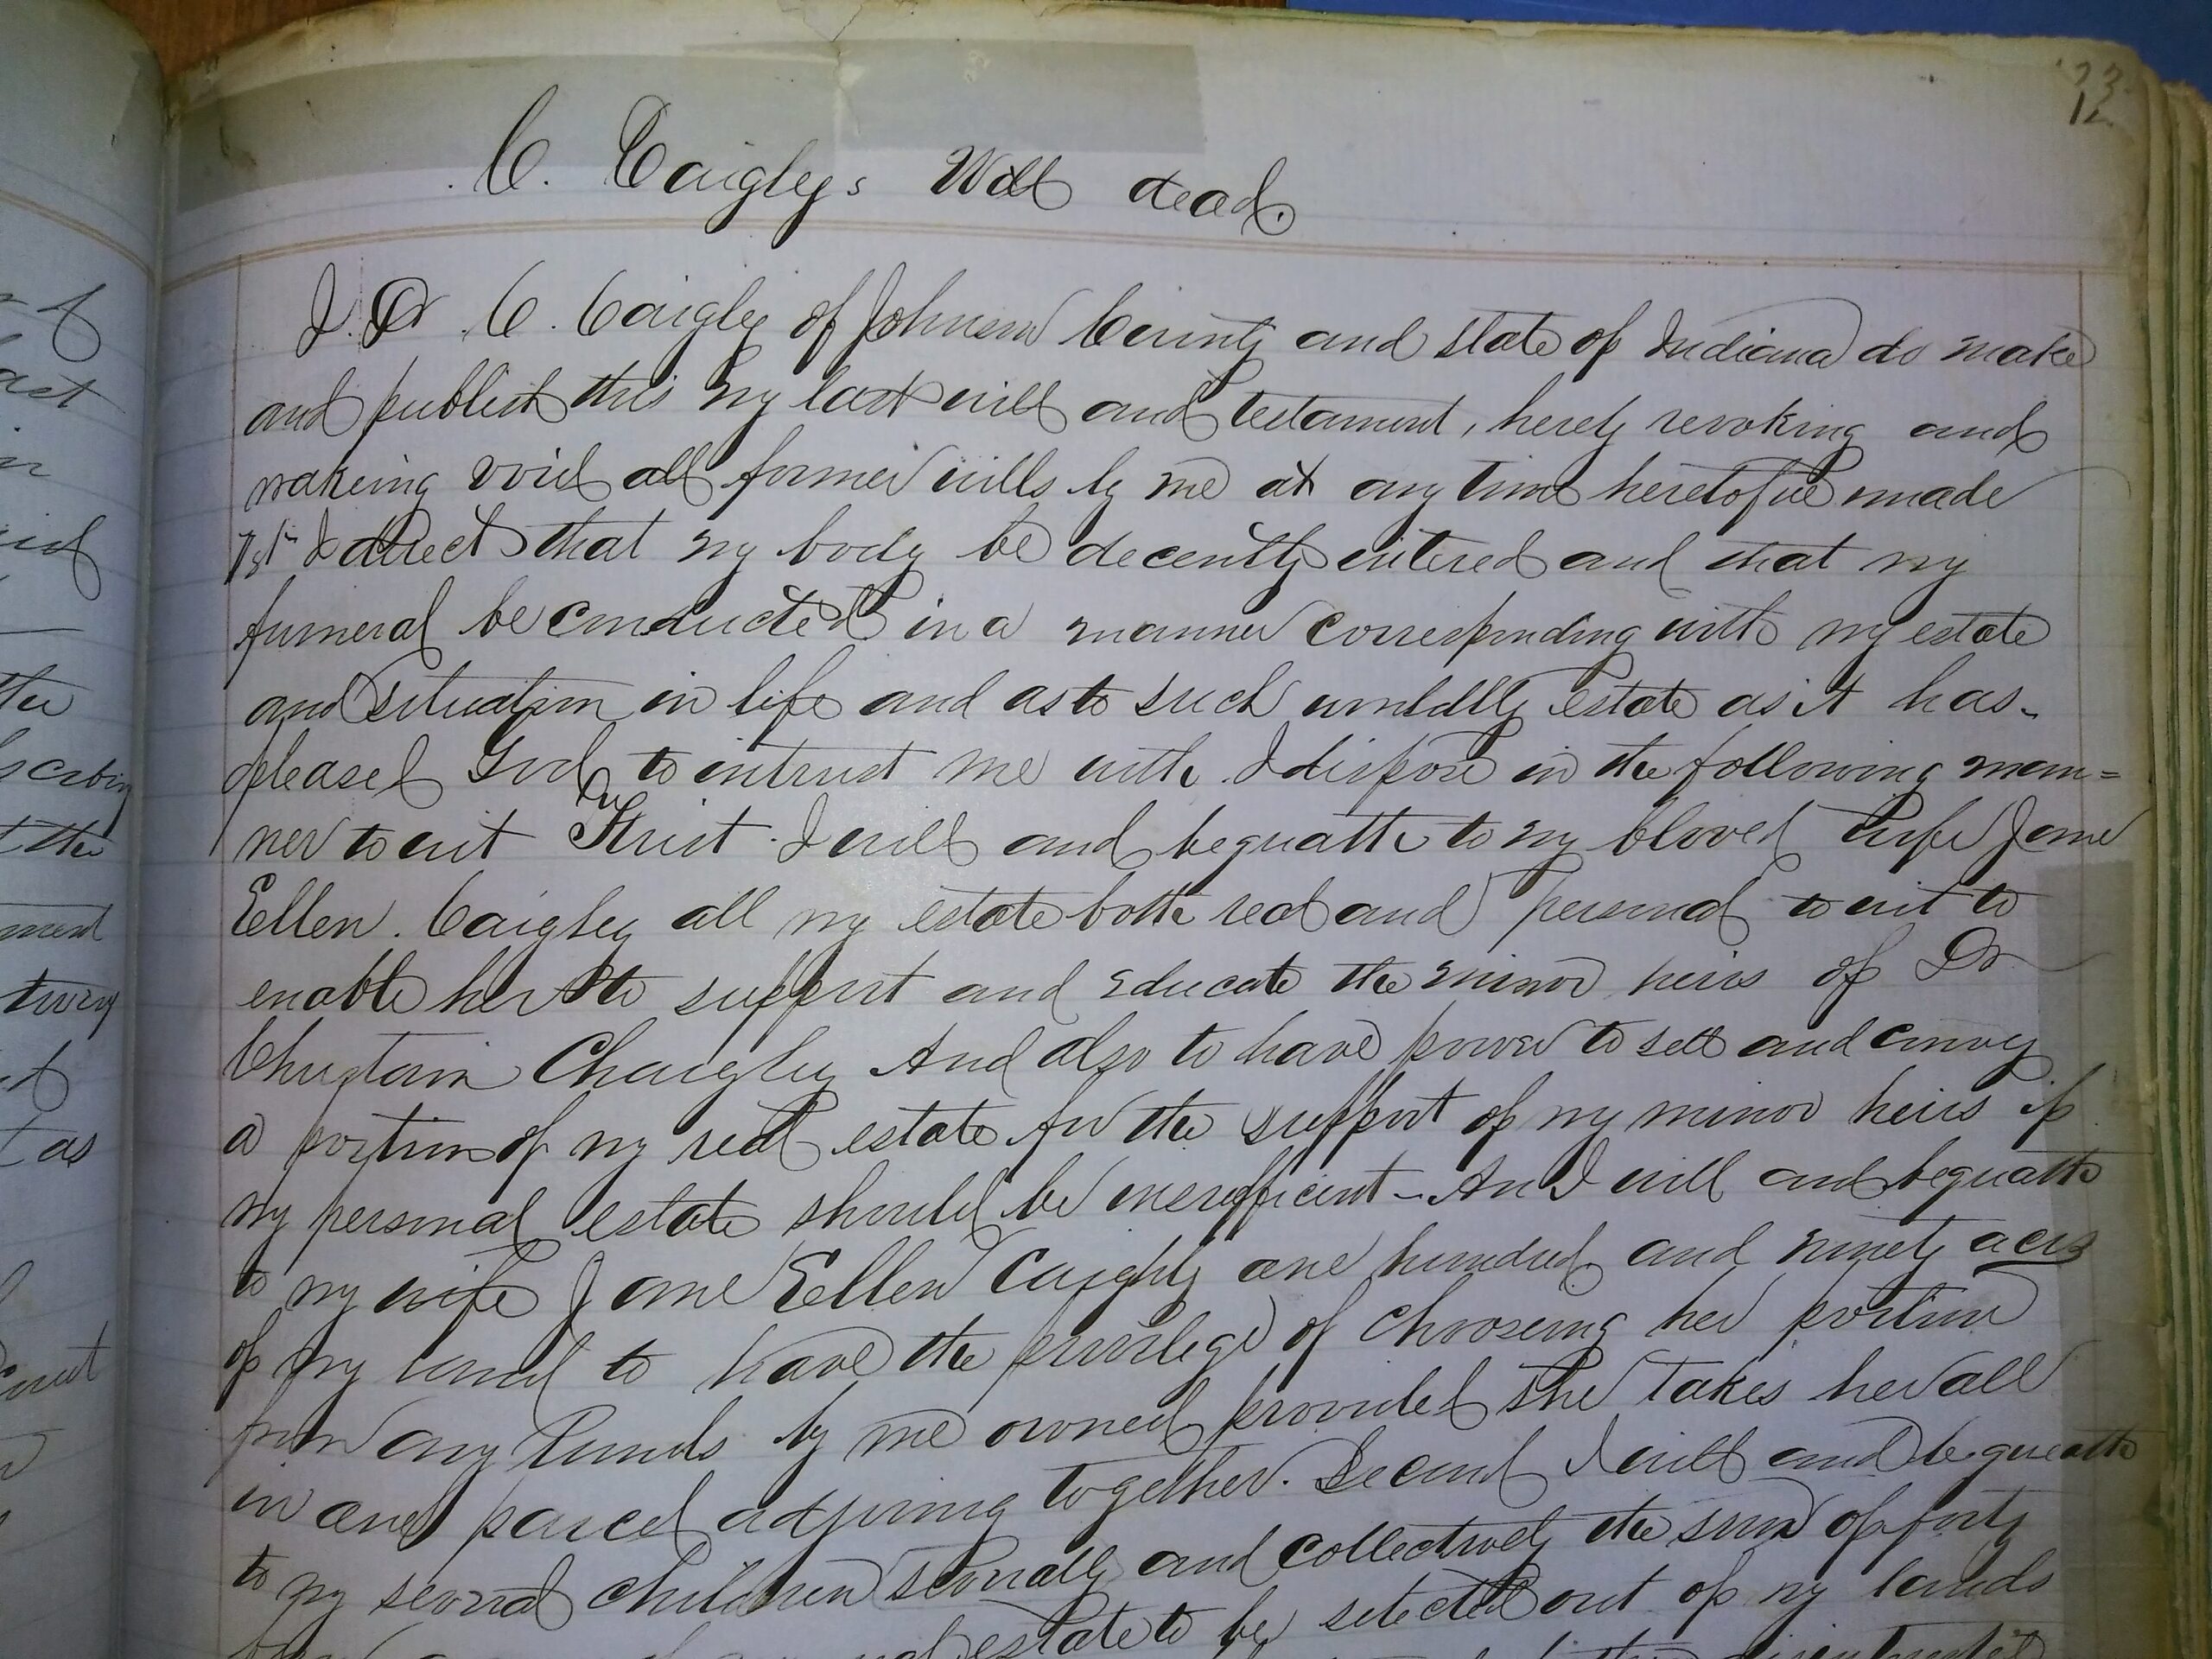 23
12
C. Caigleys Will dead.
I. Dr. C. Caigley of Johnson County and state of Indiana do make
and publish this my last will and testament, herely revoking and
makeing void all former wills by me at any time heretofore made
1st I direct that my body be decently intered and that my
funeral be conducted in a manner corresponding with my estate
and situation in life and as to such worldly estate as it has
pleased God to intrust me with I dispose in the following man=
ner to wit First I will and bequeathe to my bloved wife Jane
Eellen. Caigley all my estate bothe real and personal to wit to
enable her to support and educate the minor heirs of Dr
Chrystain Chaigley And also to have power to sell and convey
a portion of my real estate for the support of my minor heirs if
my personal estate should be inesufficient - And I will and bequeathe
to my wife Jane Eellen Caighly one hundred and ninety acers
of my land to have the privilege of choosing her portion
from any lands by me owned provided she takes her all
in one parcel adjoining together. Second I will and bequeathe
to my several children severally and collectively the sum of forty
estate to be selected out of my lands